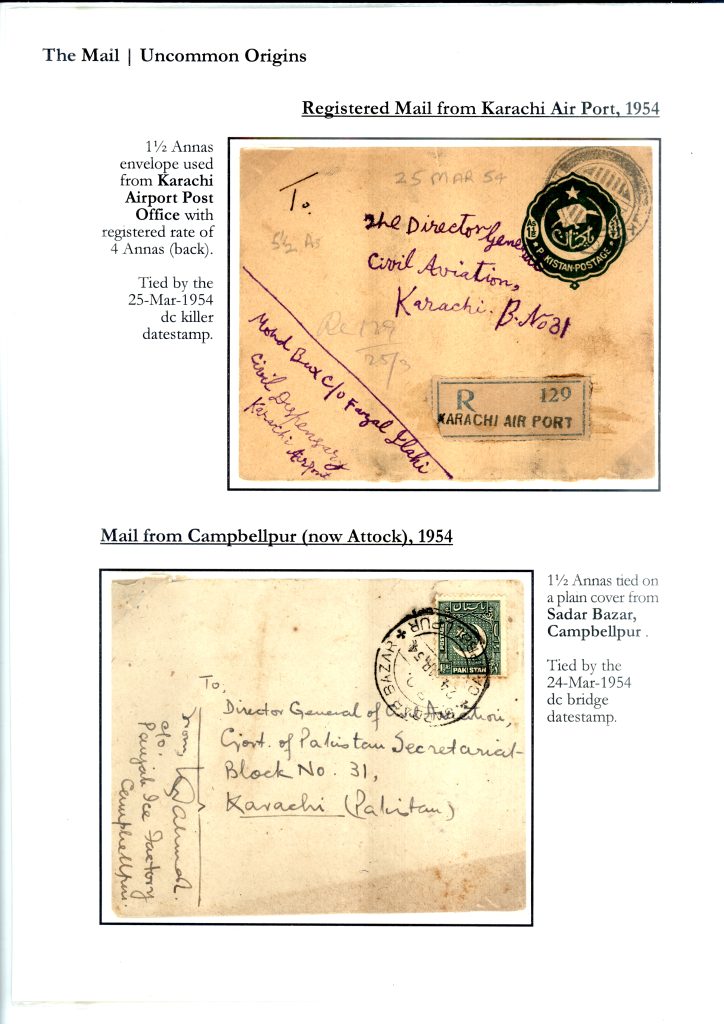 The Mail | Uncommon Origins
Registered Mail from Karachi Air Port, 1954
1½ Annas
envelope used
from Karachi
Airport Post
Office with
registered rate of
4 Annas (back).
Tied by the
25-Mar-1954
dc killer
datestamp.
25 MAR 54
To.
5½ As
The Director General
Civil Aviation,
Karachi. B. No 31
پاکستان
PAKISTAN-POSTAGE
129
25/3
Mohd Bux C/o Fazal Ilahi
Civil Dispensary
Karachi Airport
R 129
KARACHI AIR PORT
Mail from Campbellpur (now Attock), 1954
1½ Annas tied on
a plain cover from
Sadar Bazar,
Campbellpur .
Tied by the
24-Mar-1954
dc bridge
datestamp.
پاکستان
PAKISTAN
24 MAR 54
To,
Director General of Civil Aviation,
Govt. of Pakistan Secretariat
Block No. 31,
Karachi (Pakistan)
From,
c/o.
Punjab Ice Factory
Campbellpur.